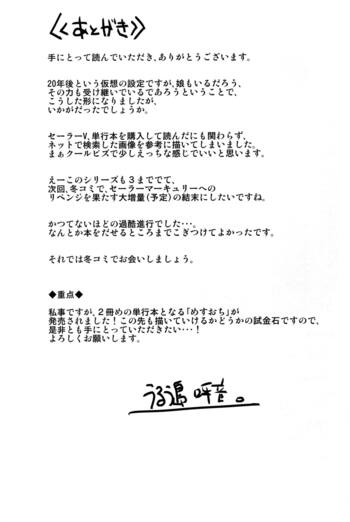 ≪くあとがき≫
手にとって読んでいただき、ありがとうございます。
20年後という仮想の設定ですが、娘もいるだろう、
その力も受け継いでいるであろうということで、
こうした形になりましたが、
いかがだったでしょうか。
セーラーV、単行本を購入して読んだにも関わらず、
ネットで検索した画像を参考に描いてしまいました。
まぁクールビズで少しえっちな感じでいいと思います。
えーこのシリーズも3まででて、
次回、冬コミで、セーラーマーキュリーへの
リベンジを果たす大増量(予定)の結末にしたいですね。
かつてないほどの過酷進行でした…。
なんとか本をだせるところまでこぎつけてよかったです。
それでは冬コミでお会いしましょう。
◆重点◆
私事ですが、2冊めの単行本となる「めすおち」が
発売されました!この先も描いていけるかどうかの試金石ですので、
是非とも手にとっていただきたい…!
よろしくお願いします。
うるう島呼音。